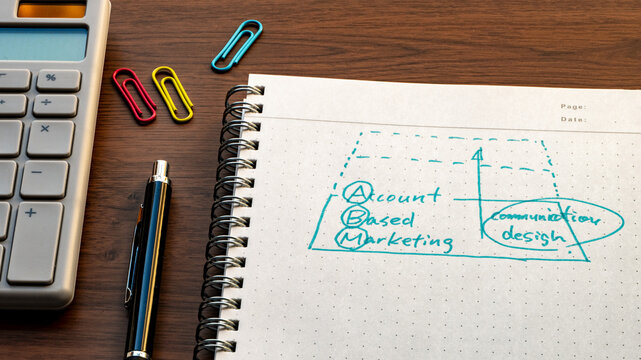 Page:
Date:
Account
Based
Marketing
communication
design
%
÷
×
−
+